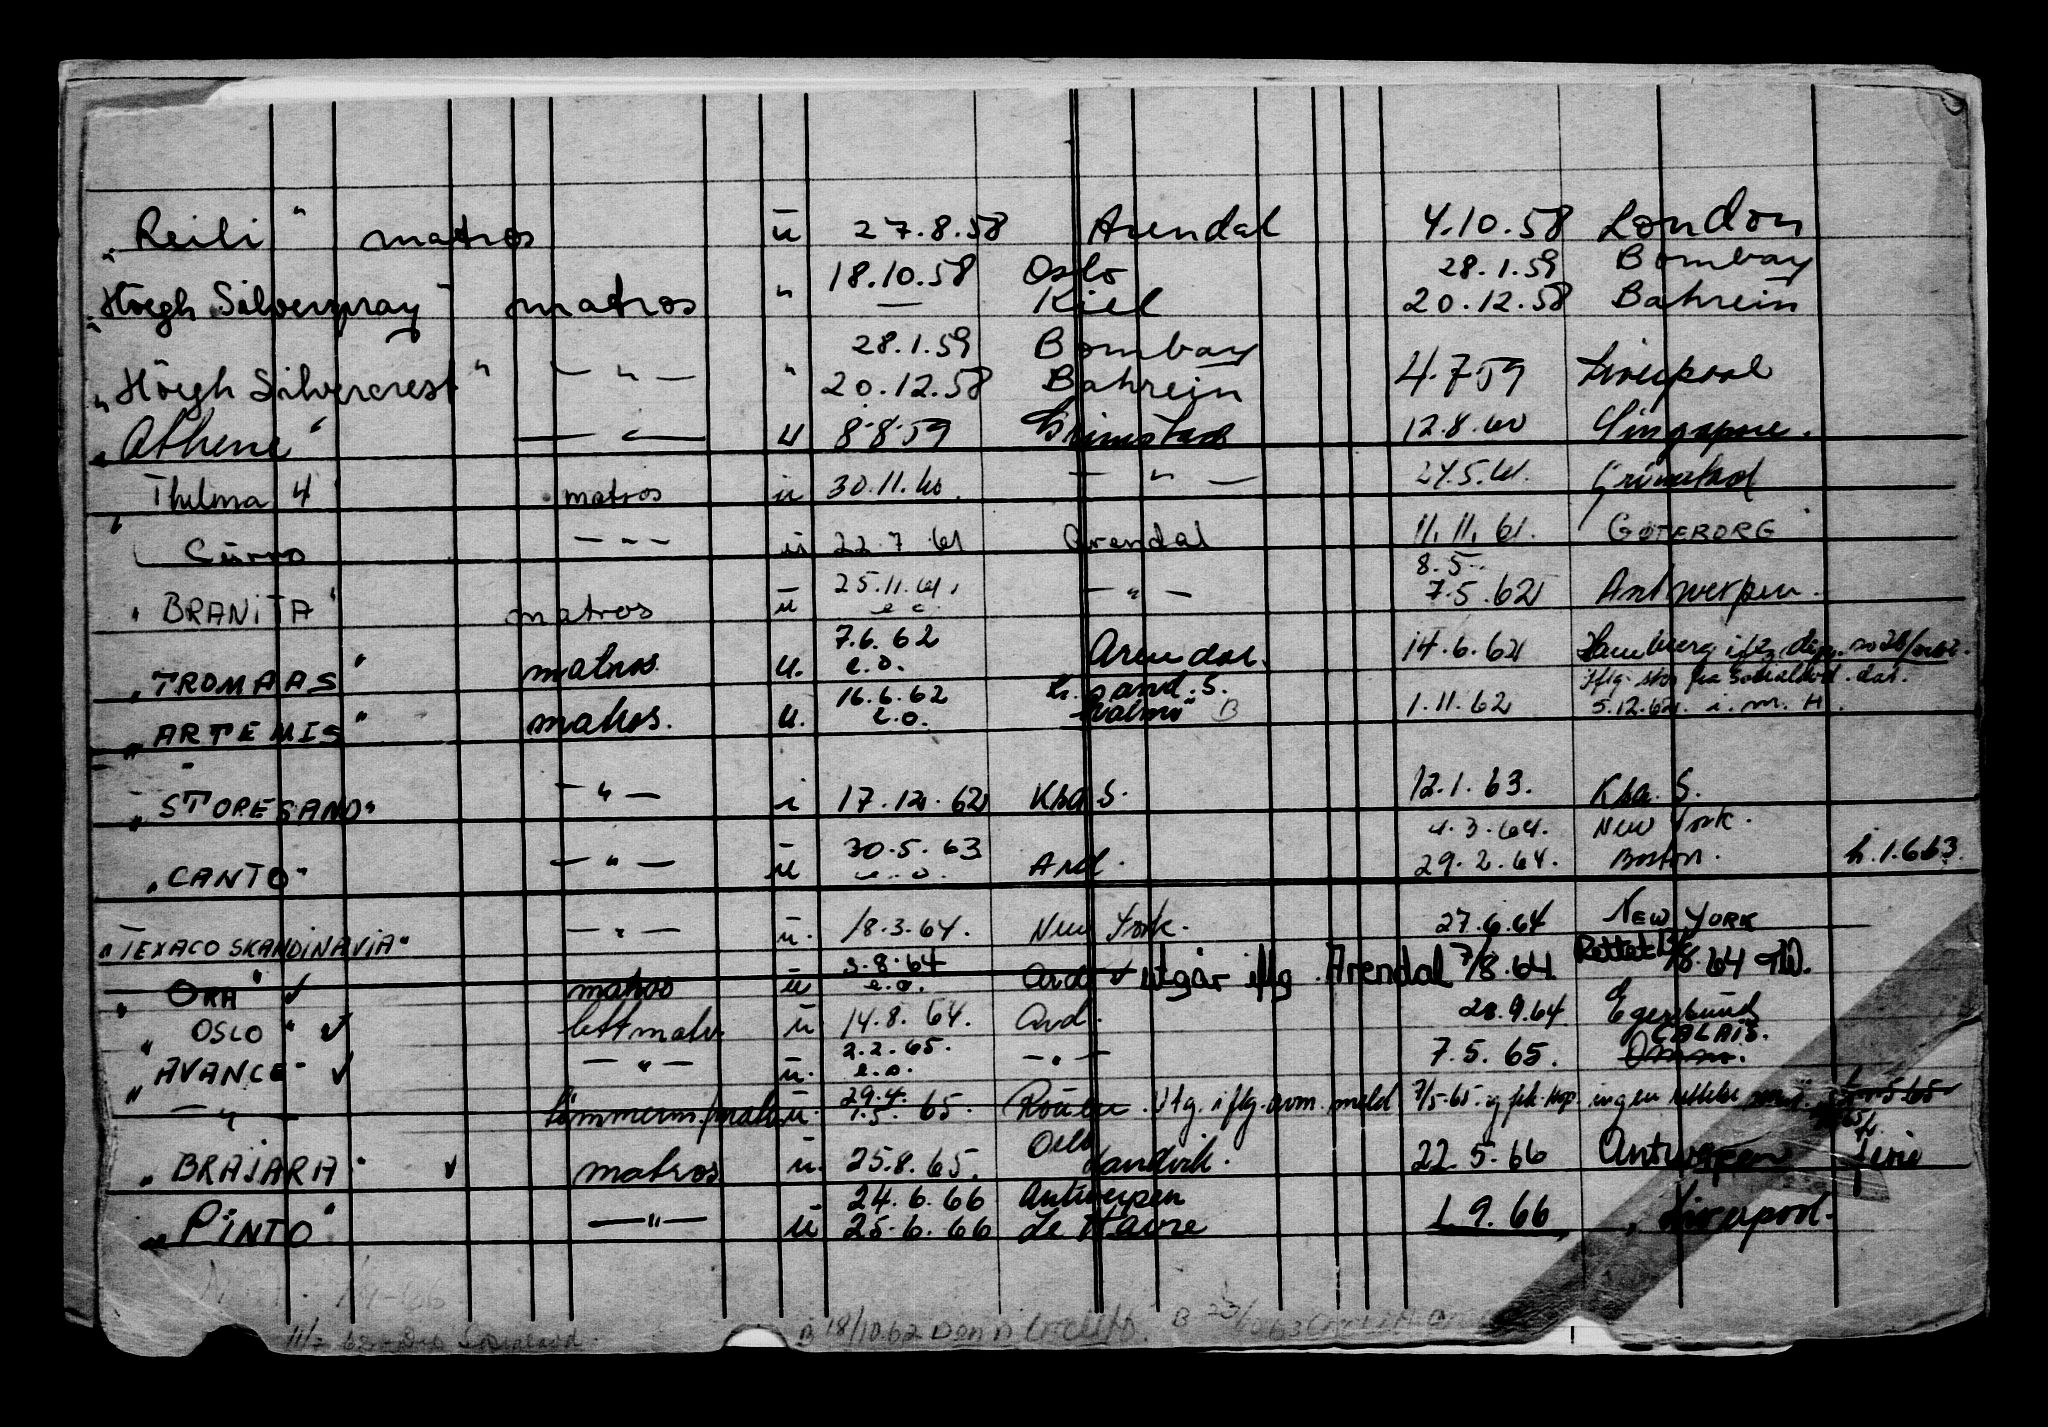 "Reili" matros u 27.8.58 Arendal 4.10.58 London
18.10.58 Oslo 28.1.59 Bombay
"Høegh Silverspray" matros " — Kiel 20.12.58 Bahrein
28.1.59 Bombay
"Höegh Silvercrest" — " — " 20.12.58 Bahrein 4.7.59 Liverpool
"Athene" — " — u 8.8.59 Grimstad 12.8.60 Singapore.
Thelma 4 matros u 30.11.60. — " — 24.5.61. Grimstad
" Curro — " — u 22.7.61 Arendal 11.11.61. GØTEBORG
8.5.
"BRANITA" matros u 25.11.61. e.o. — " — 7.5.62 Antwerpen.
7.6.62
"TROMAAS" matros u. e.o. Arendal. 14.6.62 Hamburg
16.6.62 Kr.sand. S.
"ARTEMIS" matros. u. e.o. Malmö B 1.11.62 5.12.62. i. m. H.
"STORESAND" — " — i 17.12.62 Krs. S. 12.1.63. Krs. S.
4.3.64. New York.
"CANTO" — " — u 30.5.63 e.o. Ard. 29.2.64. Boston. h.1.6.63.
"TEXACO SKANDINAVIA" — " — u. 18.3.64. New York. 27.6.64 NEW YORK
"ORA" ✓ matros u 3.8.64 e.o. Ard ✓ utgår iflg. Arendal 7/8.64 Rettet /8.64
"OSLO" ✓ lettmatr. u 14.8.64. Ard. 28.9.64 Egersund
CALAIS.
"AVANCE" ✓ — " — u. 2.2.65. e.o. — " — 7.5.65.
— " — tömmerm./matr. u. 29.4. 1.5.65. Rouen. Utg. iflg. avm. meld 7/5-65. ingen rettelse
Oslo
"BRAJARA" ✓ matros u. 25.8.65. Sandvik. 22.5.66 Antwerpen ferie
24.6.66 Antwerpen
"PINTO" — " — u 25.6.66 Le Havre 1.9.66, Liverpool.
B 18/10.62 B 23/